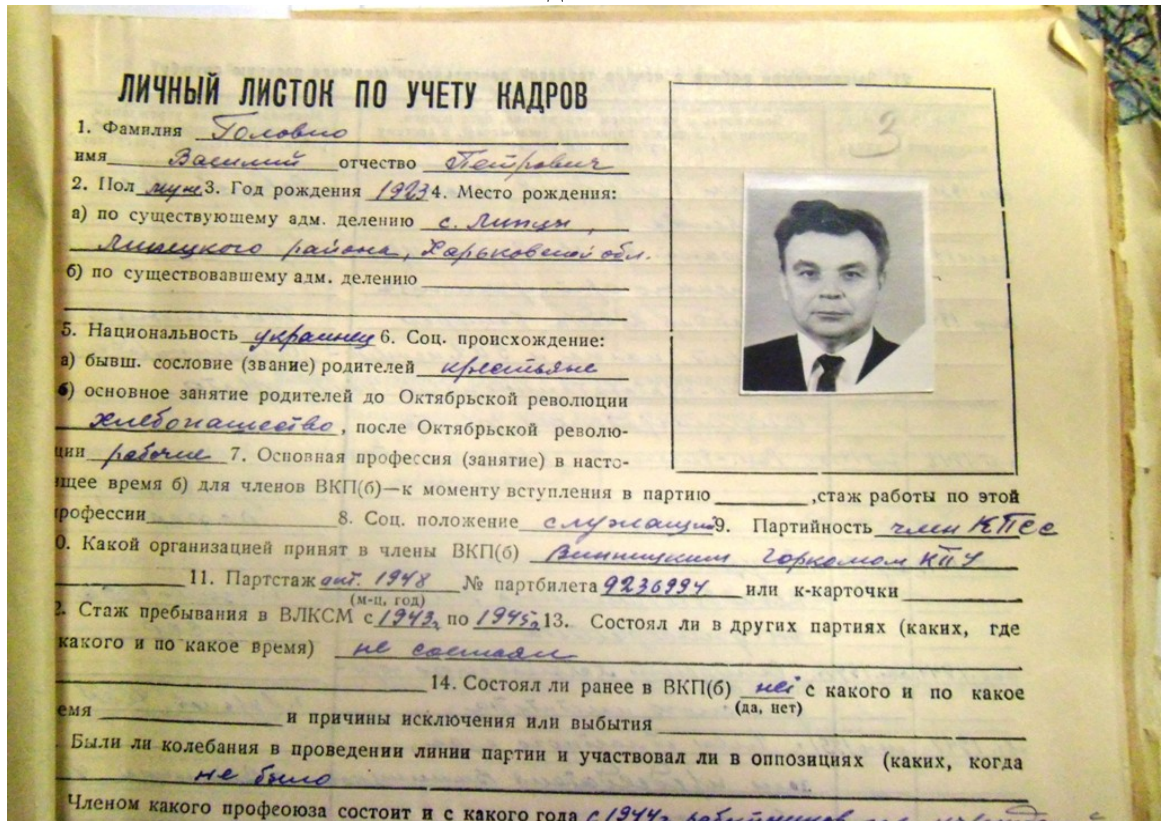 ЛИЧНЫЙ ЛИСТОК ПО УЧЕТУ КАДРОВ
3
1. Фамилия Головко
имя Василий отчество Петрович
2. Пол муж 3. Год рождения 1923 4. Место рождения:
а) по существующему адм. делению с. Липцы,
Липецкого района, Харьковской обл.
б) по существовавшему адм. делению
5. Национальность украинец 6. Соц. происхождение:
а) бывш. сословие (звание) родителей крестьяне
б) основное занятие родителей до Октябрьской революции
хлебопашество, после Октябрьской револю-
ции рабочие 7. Основная профессия (занятие) в насто-
ящее время б) для членов ВКП(б)—к моменту вступления в партию ,стаж работы по этой
рофессии 8. Соц. положение служащий 9. Партийность член КПСС
0. Какой организацией принят в члены ВКП(б) Винницким горкомом КПУ
11. Партстаж окт. 1948 № партбилета 9236994 или к-карточки
(м-ц, год)
2. Стаж пребывания в ВЛКСМ с 1943г. по 1945г. 13. Состоял ли в других партиях (каких, где
какого и по какое время) не состоял
14. Состоял ли ранее в ВКП(б) нет с какого и по какое
(да, нет)
емя и причины исключения или выбытия
Были ли колебания в проведении линии партии и участвовал ли в оппозициях (каких, когда
не было
Членом какого профсоюза состоит и с какого года с 1944г. работников